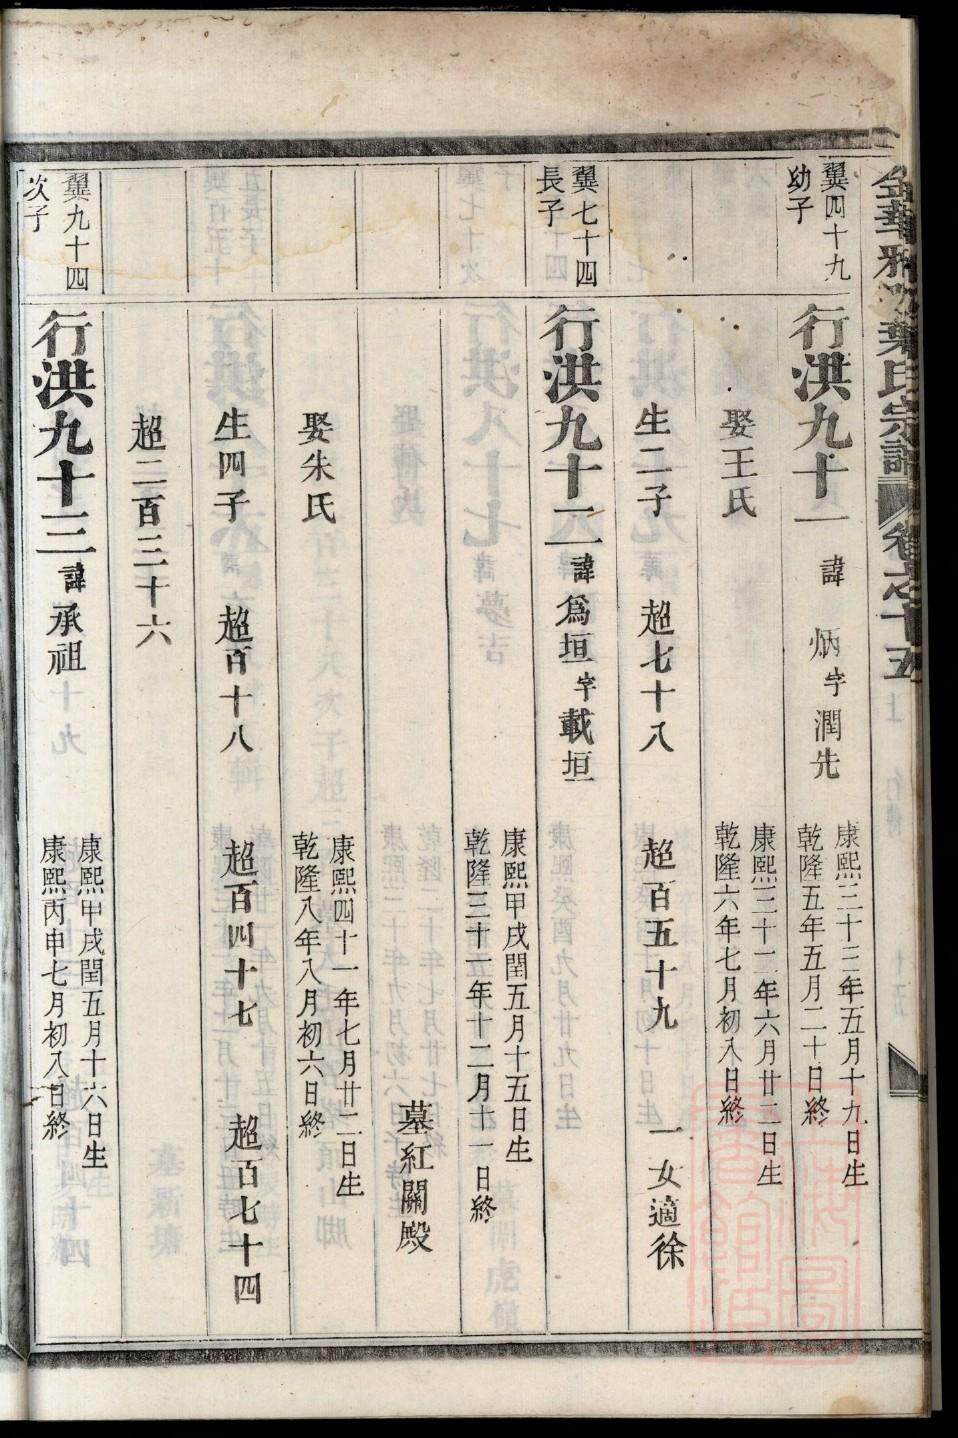 金華
葉氏宗譜
卷之十五
翼四十九
幼子
行洪九十一 諱 炳 字 潤先
康熙三十三年五月十九日生
乾隆五年五月二十日終
娶王氏
康熙三十二年六月廿三日生
乾隆六年七月初八日終
生二子 超七十八 超百五十九 一女適徐
翼七十四
長子
行洪九十二 諱 為垣 字 載垣
康熙甲戌閏五月十五日生
乾隆三十一年十二月十一日終
墓紅關殿
娶朱氏
康熙四十一年七月廿二日生
乾隆八年八月初六日終
生四子 超百十八 超百四十七 超百七十四
超二百三十六
翼九十四
次子
行洪九十三 諱 承祖
康熙甲戌閏五月十六日生
康熙丙申七月初八日終